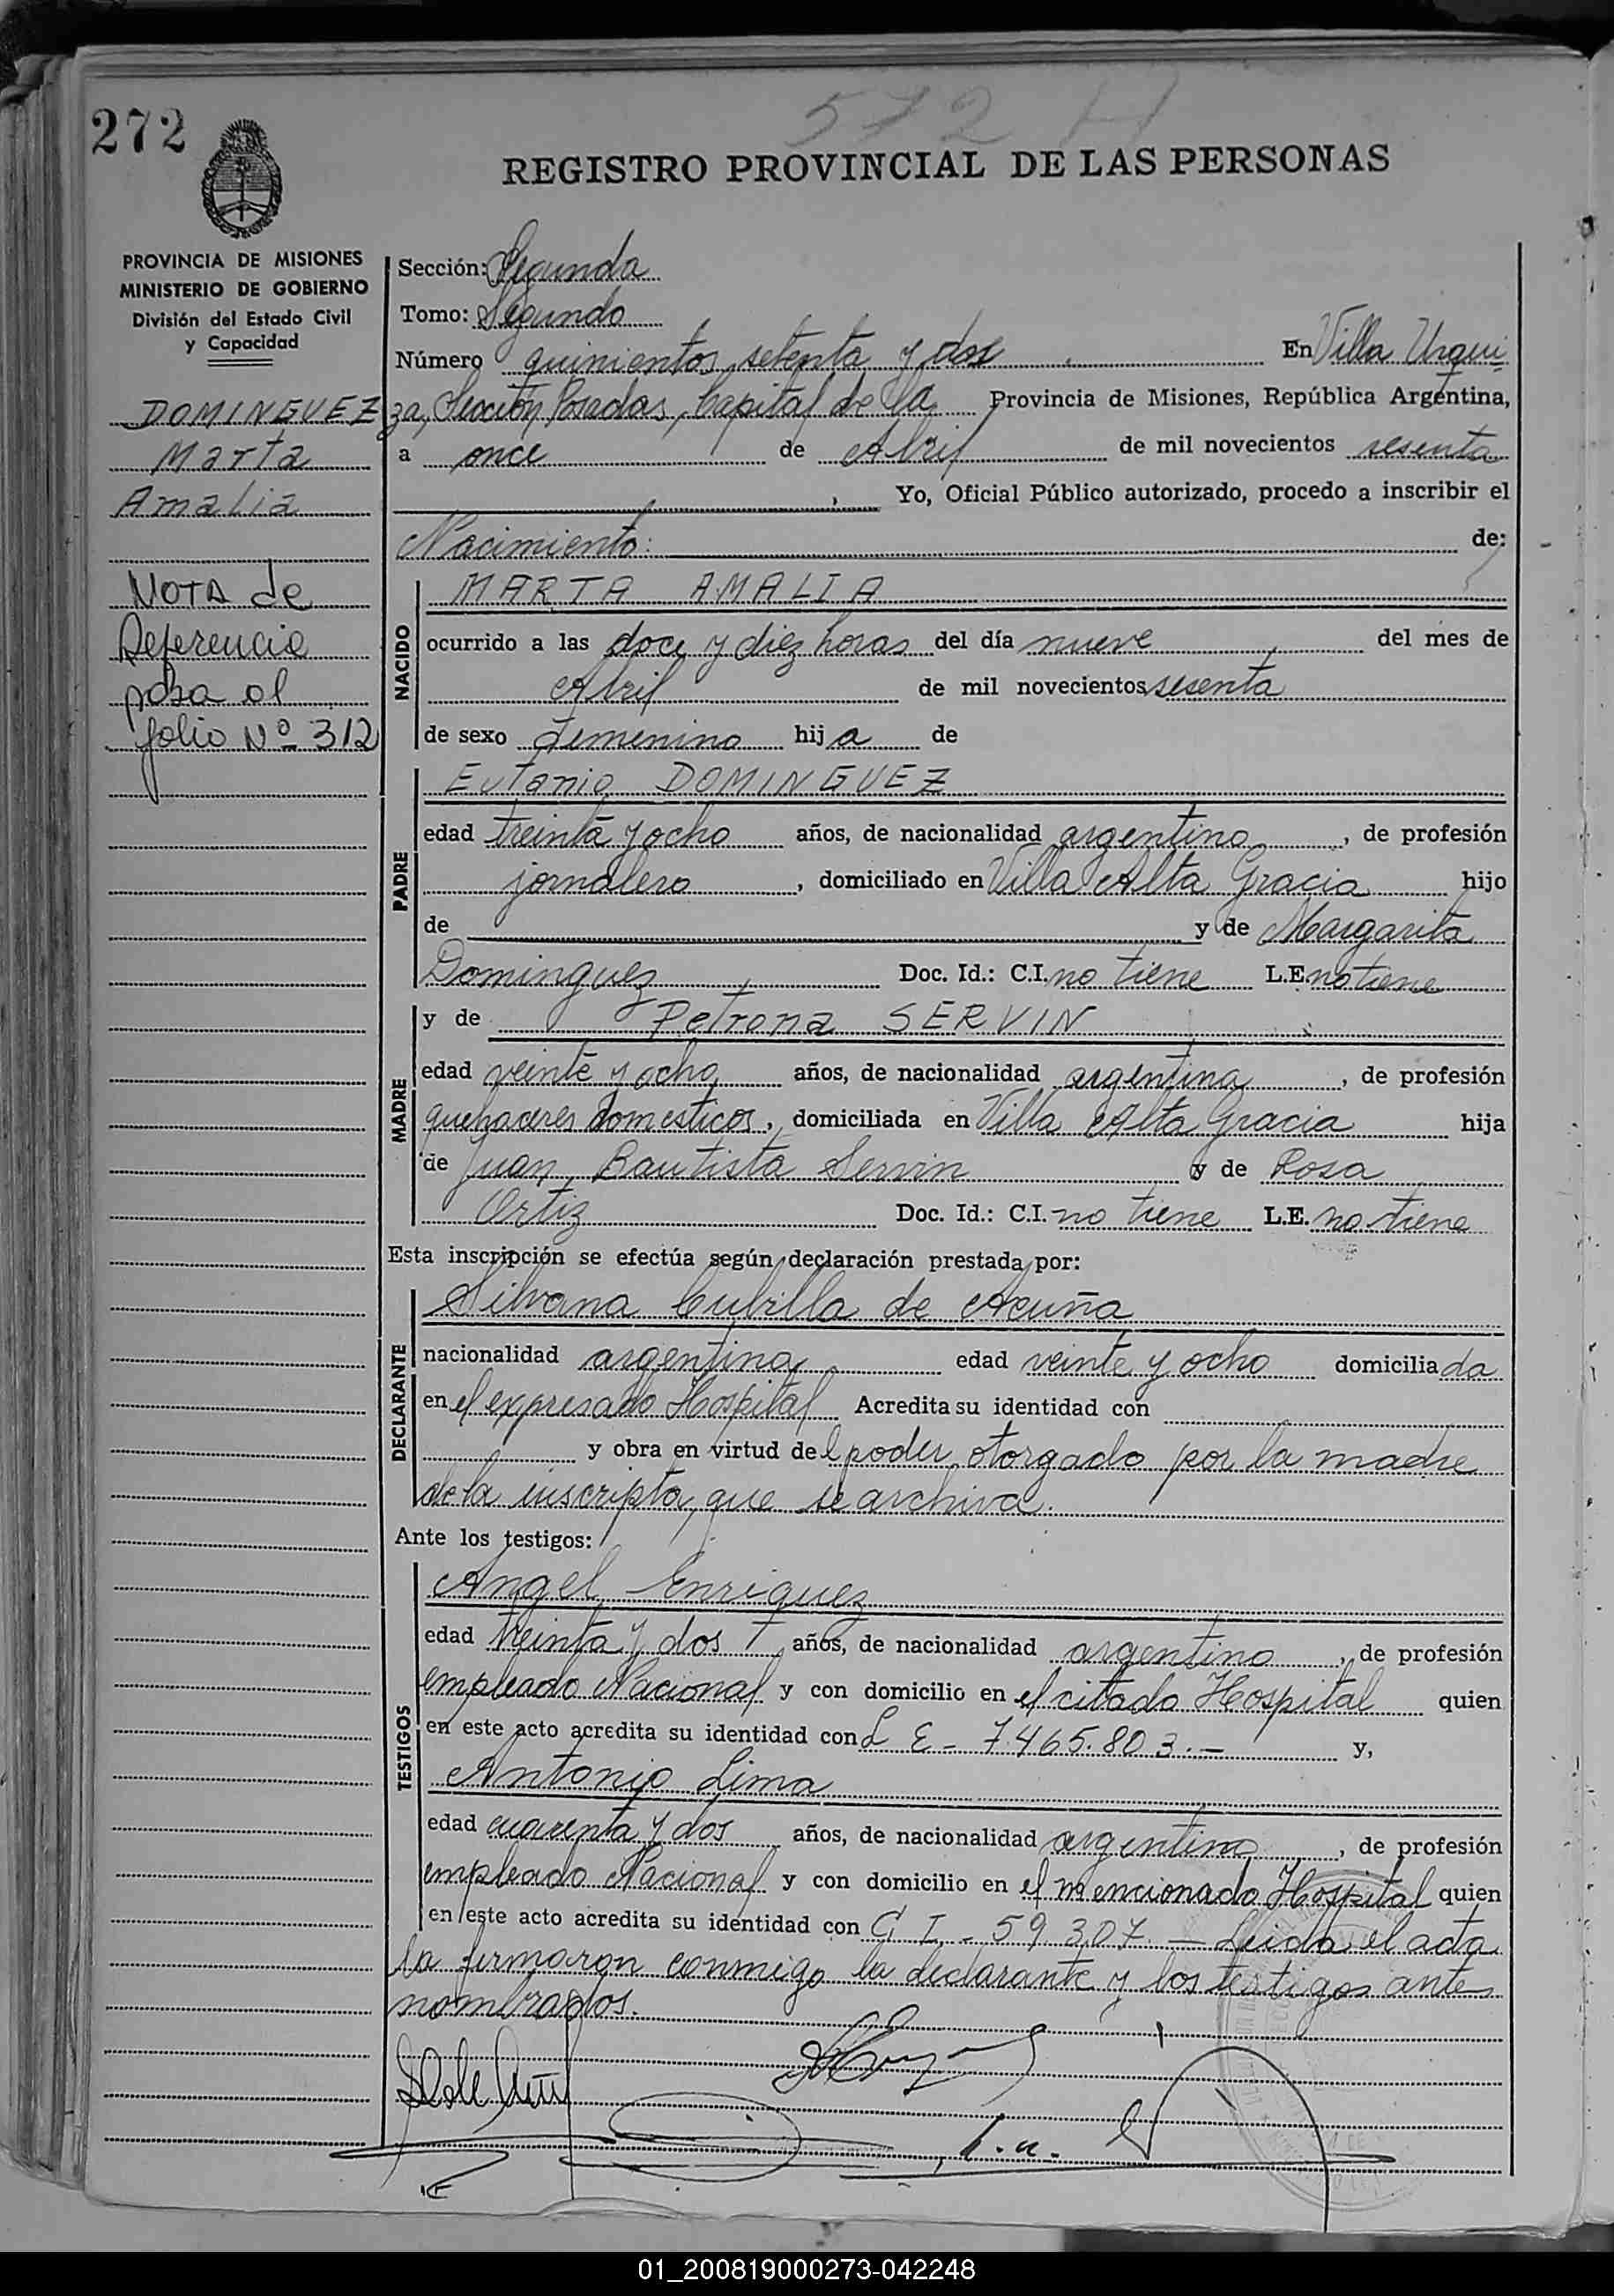 272
572 H
REGISTRO PROVINCIAL DE LAS PERSONAS
PROVINCIA DE MISIONES
MINISTERIO DE GOBIERNO
División del Estado Civil
y Capacidad
DOMINGUEZ
Marta
Amalia
NOTA de
Referencia
pasa al
folio Nº 312
Sección: Segunda
Tomo: Segundo
Número quinientos setenta y dos En Villa Urqui
za, Sección Posadas, Capital de la Provincia de Misiones, República Argentina,
a once de Abril de mil novecientos sesenta
, Yo, Oficial Público autorizado, procedo a inscribir el
Nacimiento: de:
NACIDO
MARTA AMALIA
ocurrido a las doce y diez horas del día nueve del mes de
Abril de mil novecientos sesenta
de sexo femenino hija de
PADRE
Eutanio DOMINGUEZ
edad treinta y ocho años, de nacionalidad argentino, de profesión
jornalero, domiciliado en Villa Alta Gracia hijo
de y de Margarita
Dominguez Doc. Id.: C.I. no tiene L.E. no tiene
MADRE
y de Petrona SERVIN
edad veinte y ocho años, de nacionalidad argentina, de profesión
quehaceres domesticos, domiciliada en Villa Alta Gracia hija
de Juan Bautista Servin y de Rosa
Ortiz Doc. Id.: C.I. no tiene L.E. no tiene
Esta inscripción se efectúa según declaración prestada por:
DECLARANTE
Silvana Cubilla de Acuña
nacionalidad argentina edad veinte y ocho domiciliada
en el expresado Hospital Acredita su identidad con
y obra en virtud del poder otorgado por la madre
de la inscripta, que se archiva.
Ante los testigos:
TESTIGOS
Angel Enriquez
edad treinta y dos años, de nacionalidad argentino, de profesión
empleado Nacional y con domicilio en el citado Hospital quien
en este acto acredita su identidad con L E - 7.465.803.- y,
Antonio Lima
edad cuarenta y dos años, de nacionalidad argentino, de profesión
empleado Nacional y con domicilio en el mencionado Hospital quien
en este acto acredita su identidad con C I - 59.307 - Leida el acta
la firmaron conmigo la declarante y los testigos ante
nombrados.
01_200819000273-042248